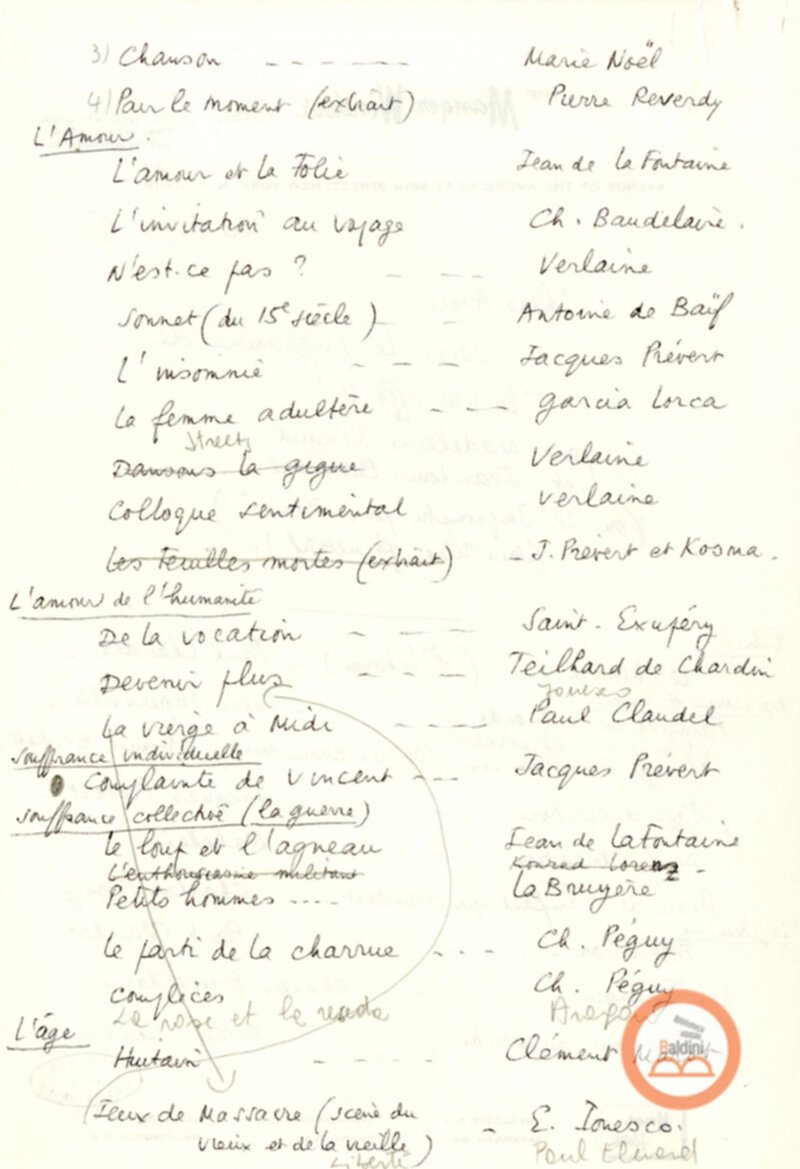 3) Chanson - - - - - - Marie Noël
4) Pour le moment (extrait) Pierre Reverdy
L'Amour.
L'amour et la Folie Jean de la Fontaine
L'invitation au voyage Ch. Baudelaire.
N'est-ce pas ? - - - Verlaine
Sonnet (du 15e siècle) - - Antoine de Baïf
L'insomnie - - - Jacques Prévert
La femme adultère - - - Garcia Lorca
Streets
Dansons la gigue Verlaine
Colloque sentimental Verlaine
Les Feuilles mortes (extrait) - J. Prévert et Kosma.
L'amour de l'humanité
De la vocation - - - Saint-Exupéry
Devenir plus - - - Teilhard de Chardin
Ionesco
La vierge à Midi - - - - Paul Claudel
Souffrance individuelle
Complainte de Vincent - - - Jacques Prévert
Souffrance collective (la guerre)
Le loup et l'agneau Jean de La Fontaine
L'enthousiasme militant Konrad Lorenz -
Petits hommes - - - - La Bruyère
Le parti de la charrue - - - Ch. Péguy
Complices Ch. Péguy
La rose et le reseda Aragon
L'âge
Huitain - - - - Clément
(Jeux de Massacre (scène du - E. Ionesco.
vieux et de la vieille)
Liberté Paul Eluard
Baldini